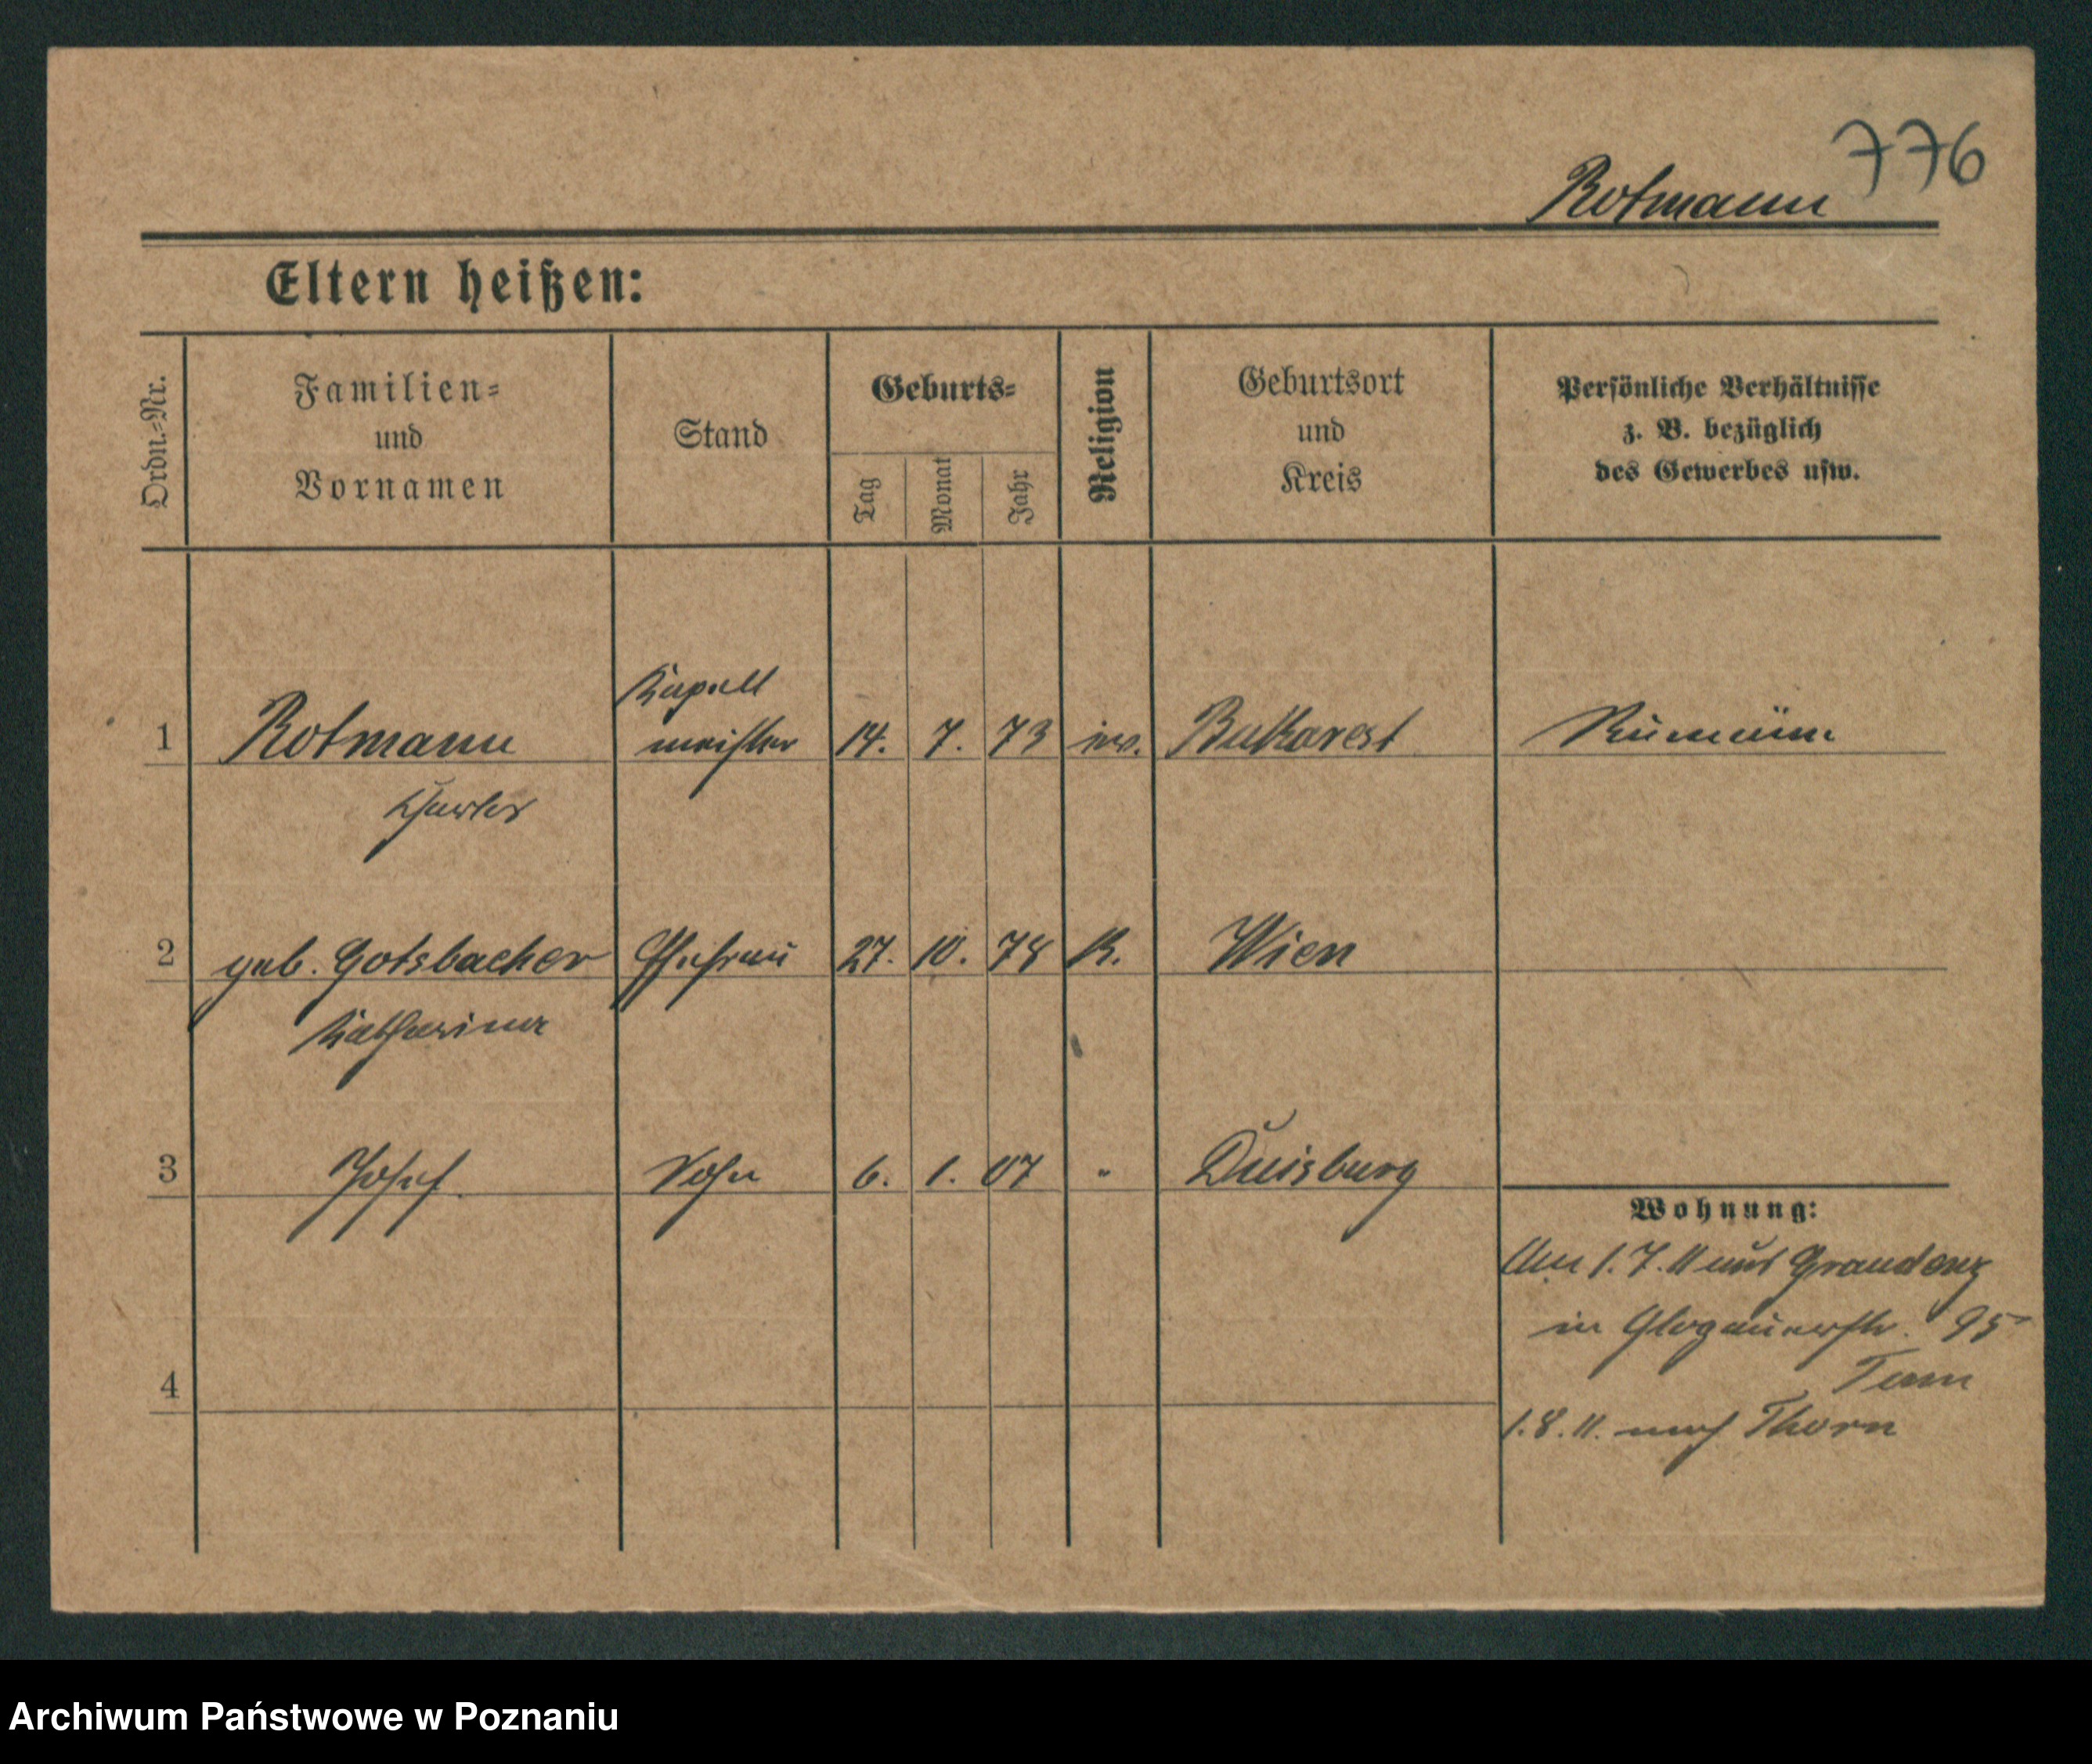 776
Rotmann
Eltern heißen:
Ordn.=Nr.
Familien=
und
Vornamen
Stand
Geburts=
Tag
Monat
Jahr
Religion
Geburtsort
und
Kreis
Persönliche Verhältnisse
z. B. bezüglich
des Gewerbes usw.
Kapell
1 Rotmann meister 14. 7. 73 Bukarest
Charles
2 geb. Gotsbacher Ehefrau 27. 10. 78 K. Wien
Katharina
3 Josef. Sohn 6. 1. 07 " Duisburg
Wohnung:
Am 1.7.11 aus Graudenz
in Glogauerstr. 95
4
1.8.11. nach Thorn
Archiwum Państwowe w Poznaniu